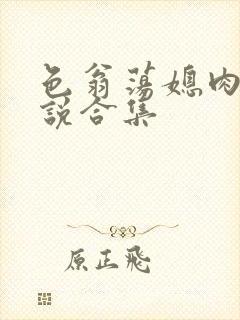 色翁荡媳肉
说合集
原正飛